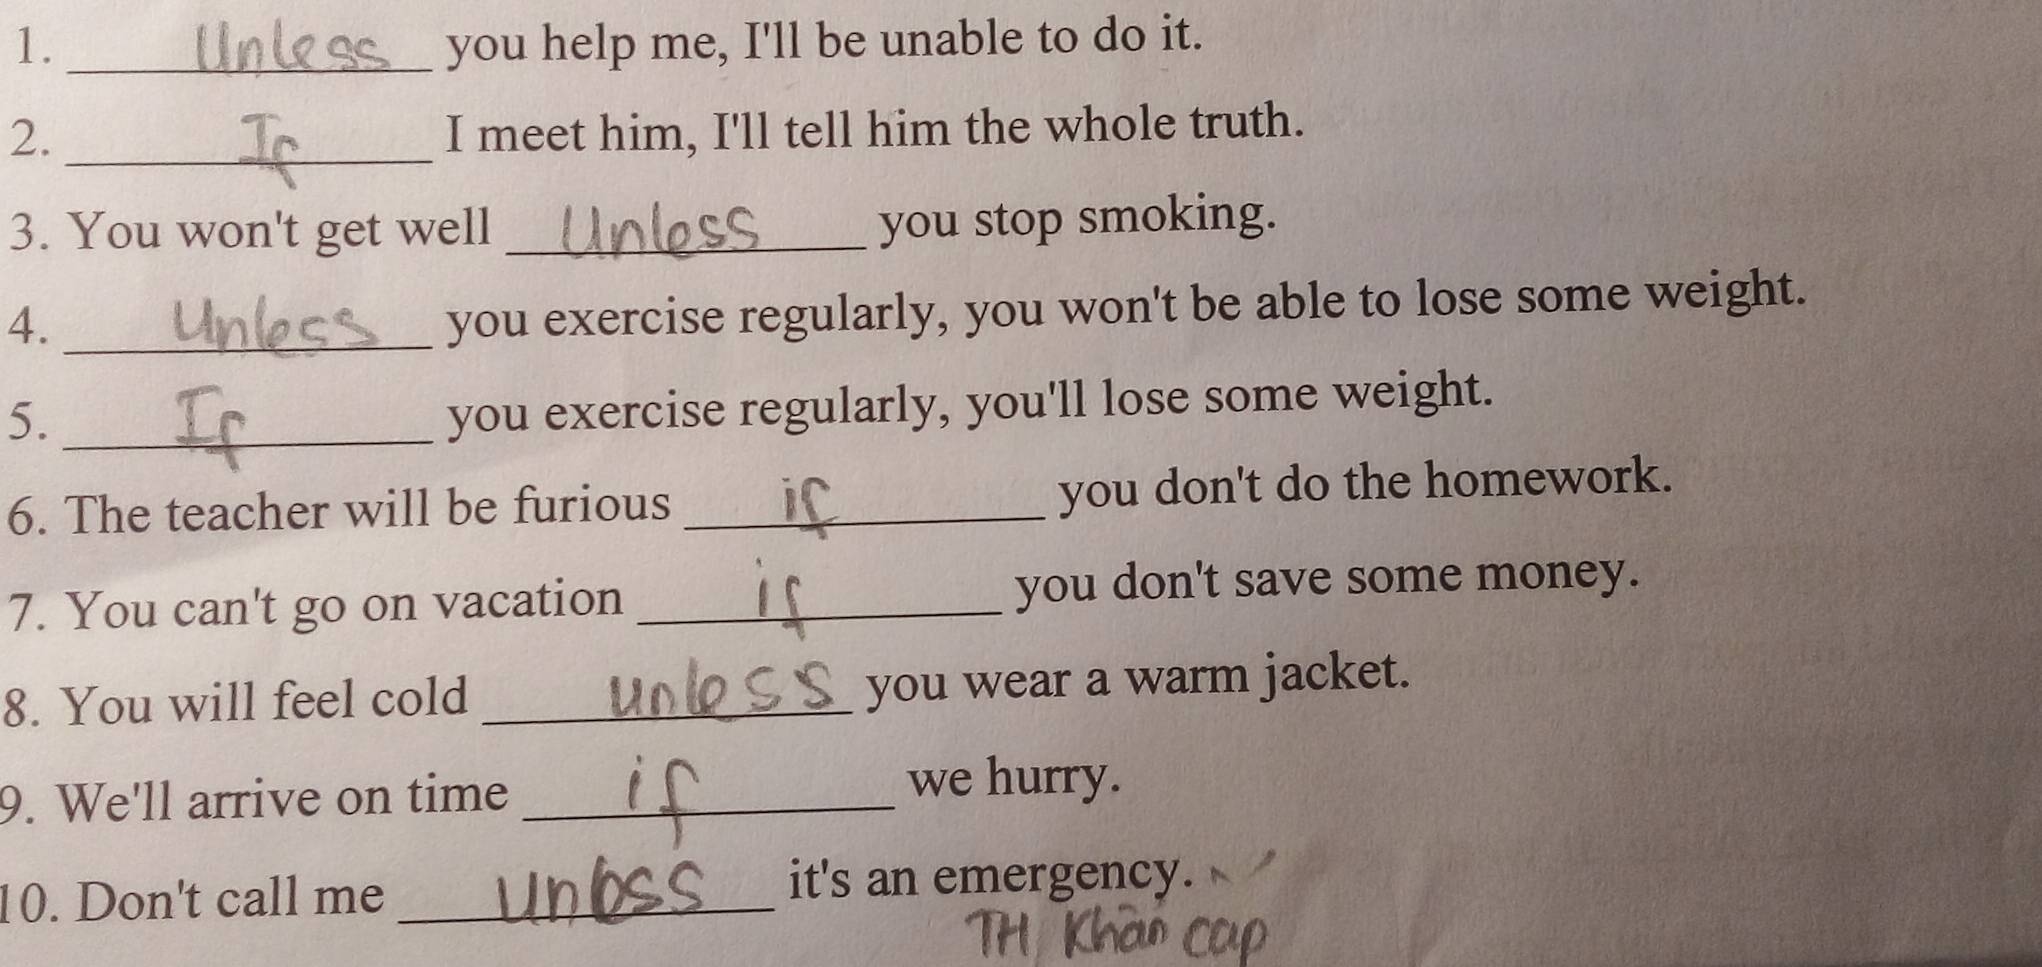 1. Unless you help me, I'll be unable to do it.
2. If I meet him, I'll tell him the whole truth.
3. You won't get well Unless you stop smoking.
4. Unless you exercise regularly, you won't be able to lose some weight.
5. If you exercise regularly, you'll lose some weight.
6. The teacher will be furious if you don't do the homework.
7. You can't go on vacation if you don't save some money.
8. You will feel cold unless you wear a warm jacket.
9. We'll arrive on time if we hurry.
10. Don't call me unless it's an emergency.
TH khẩn cấp